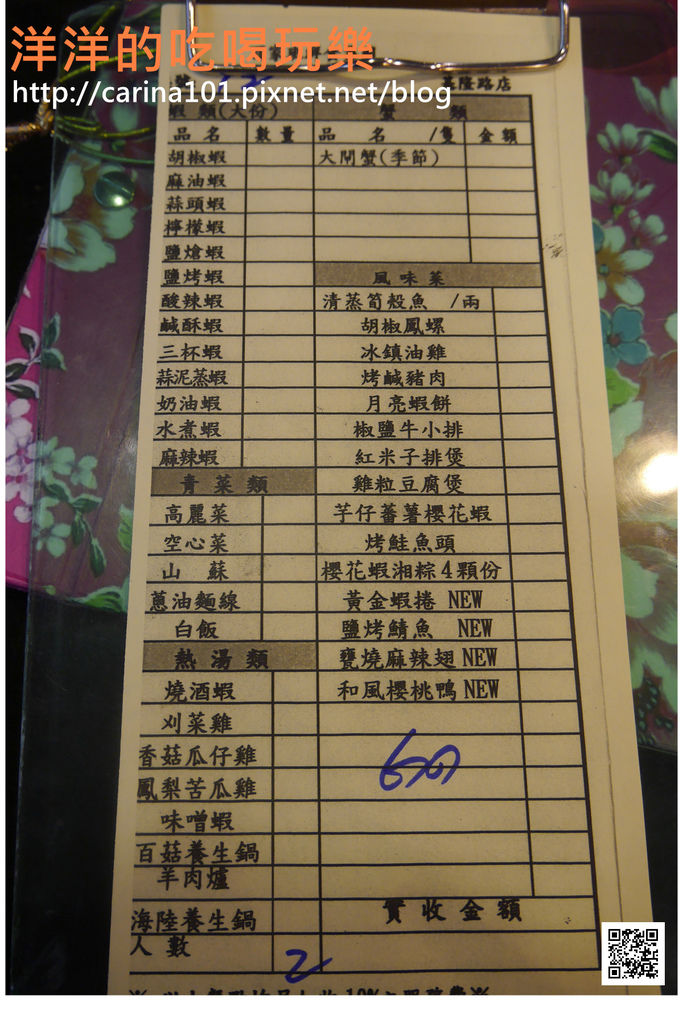 洋洋的吃喝玩樂
http://carina101.pixnet.net/blog
基隆路店
蝦類(大份)
品名 數量
胡椒蝦
麻油蝦
蒜頭蝦
檸檬蝦
鹽熗蝦
鹽烤蝦
酸辣蝦
鹹酥蝦
三杯蝦
蒜泥蒸蝦
奶油蝦
水煮蝦
麻辣蝦
青菜類
高麗菜
空心菜
山蘇
蔥油麵線
白飯
熱湯類
燒酒蝦
刈菜雞
香菇瓜仔雞
鳳梨苦瓜雞
味噌蝦
百菇養生鍋
羊肉爐
海陸養生鍋
人數
2
蟹類
品名 /隻 金額
大閘蟹(季節)
風味菜
清蒸筍殼魚 /兩
胡椒鳳螺
冰鎮油雞
烤鹹豬肉
月亮蝦餅
椒鹽牛小排
紅米子排煲
雞粒豆腐煲
芋仔蕃薯櫻花蝦
烤鮭魚頭
櫻花蝦湘粽4顆份
黃金蝦捲 NEW
鹽烤鯖魚 NEW
甕燒麻辣翅 NEW
和風櫻桃鴨 NEW
實收金額